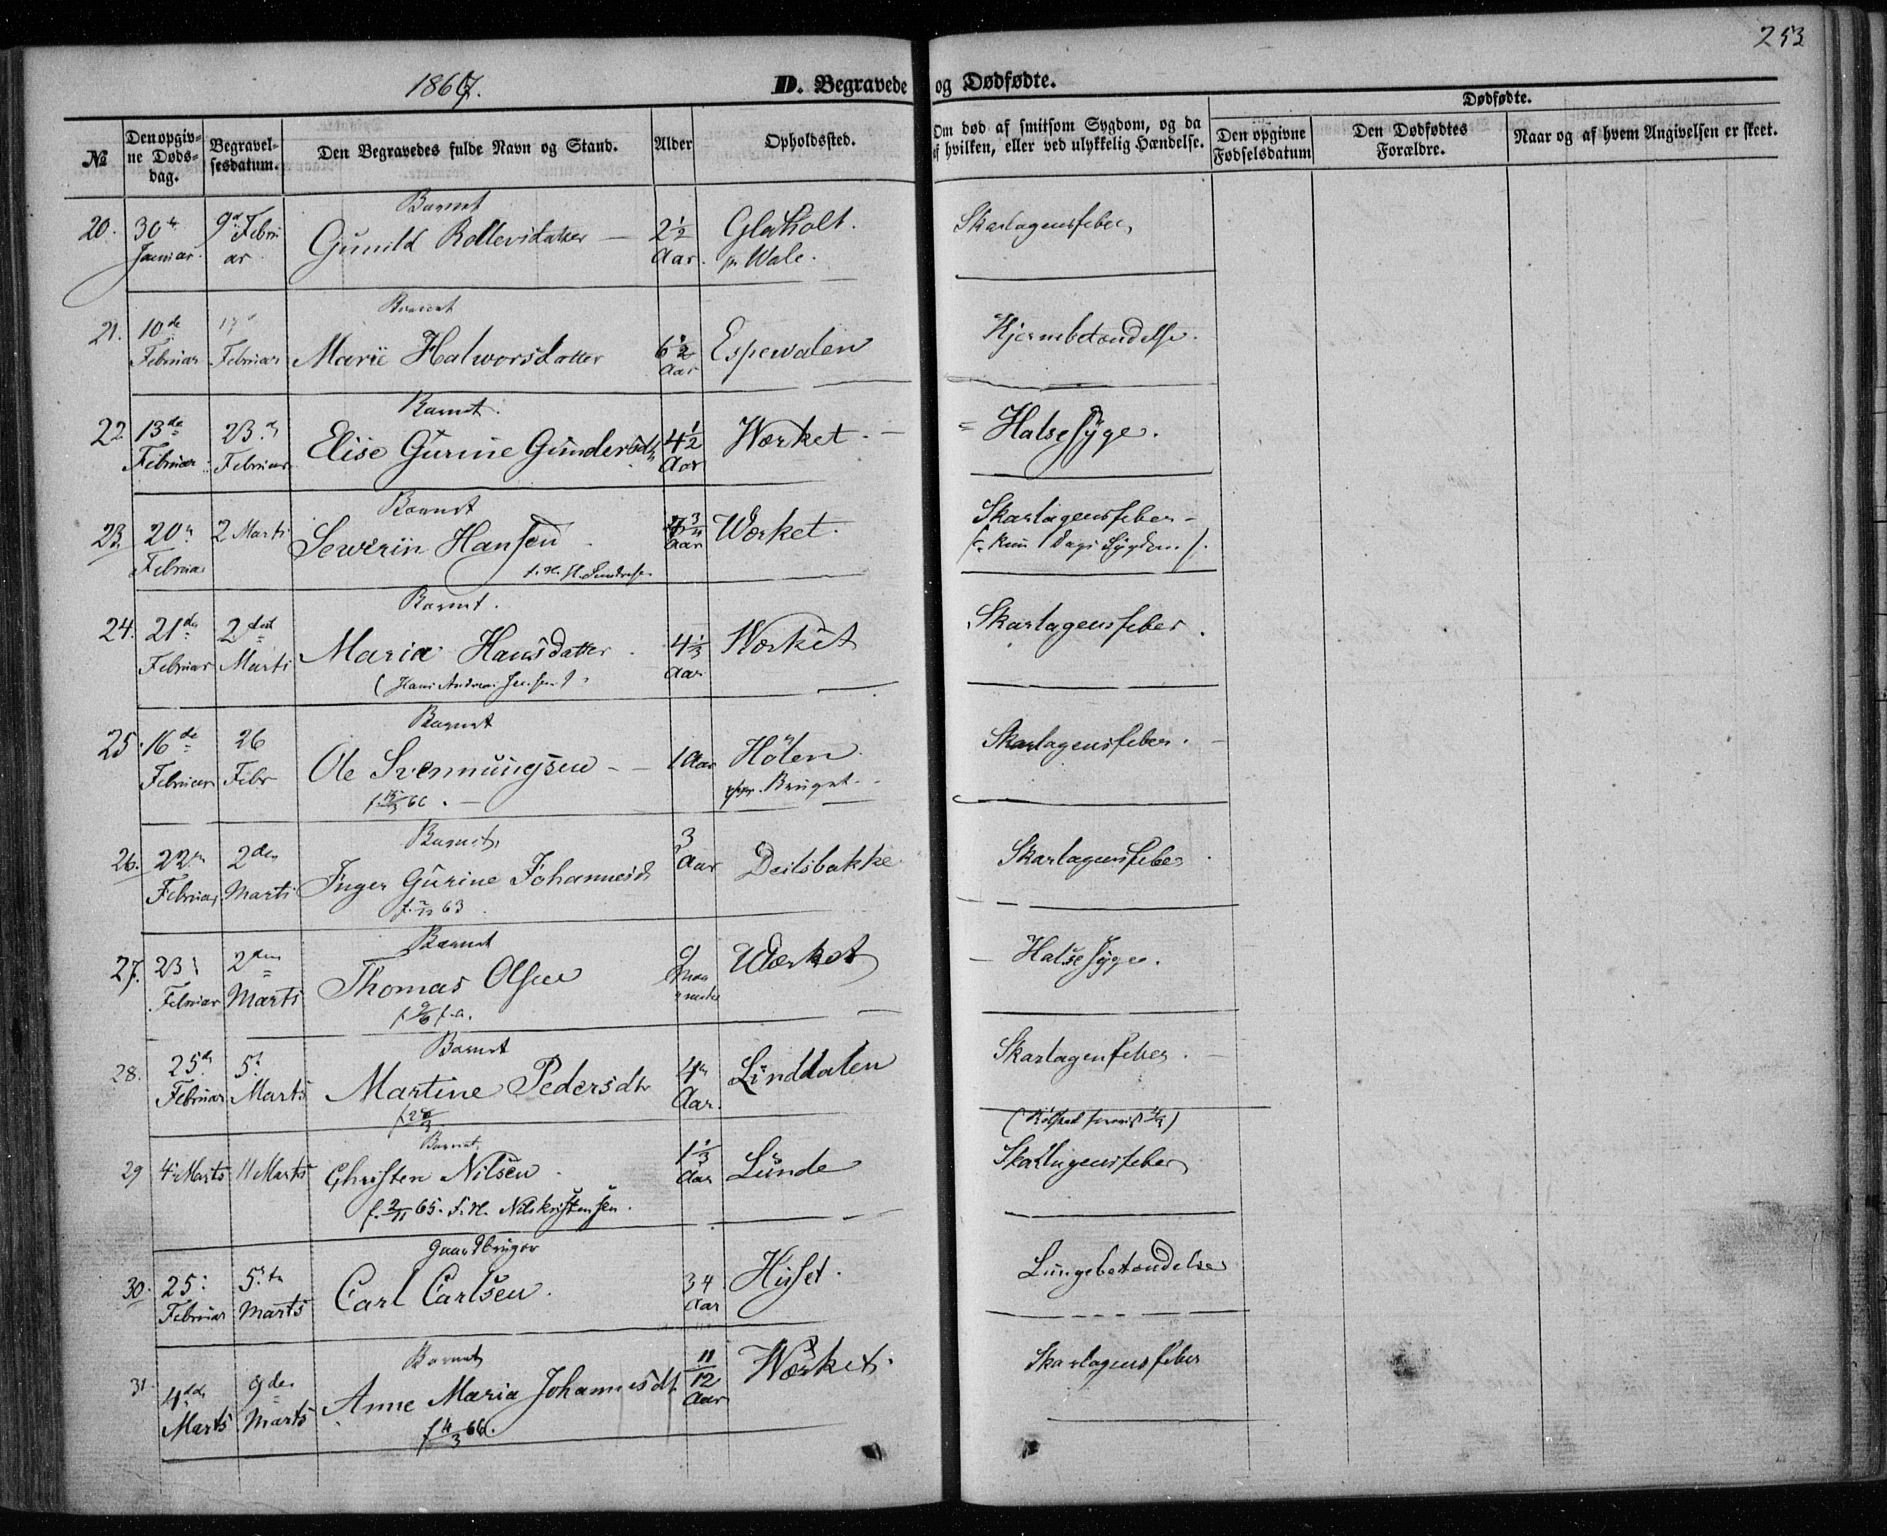 253
1867.
D. Begravede og Dødfødte.
Dødfødte.
№
Den opgivne Dødsdag.
Begravelsesdatum.
Den Begravedes fulde Navn og Stand.
Alder
Opholdssted.
Om død af smitsom Sygdom, og da af hvilken, eller ved ulykkelig Hændelse.
Den opgivne Fødselsdatum
Den Dødfødtes Forældre.
Naar og af hvem Angivelsen er skeet.
Barnet
20. 30te Januar. 9de Februar Gunild Rollevsdatter — 2½ Aar. Glaholt. Skarlagensfeber,
Barnet
21. 10de Februar Februar Marie Halworsdatter 6½ Aar Espewalen Hjernebetændelse.
Barnet.
22 13de Februar 23de Februar Elise Gurine Gundersdtr 4½ Aar Wærket. — Halsesyge.
Barnet
23. 20de Februar 2 Marts Severin Hansen Aar Wærket. Skarlagensfeber —
(kun 1 Dags Sygdom).
Barnet.
24. 21de Februar 2den Marts Maria Hansdatter 4⅓ Aar Wærket Skarlagensfeber.
(Hans Andreas Jensen)
Barnet
25. 16de Februar 26 Febr Ole Svenmungsen — 1 Aar Hølen Skarlagensfeber.
66.
Barnet
26. 22de Februar 2den Marts Inger Gurine Johannesd 3 Aar Deilsbakke Skarlagensfeber
63.
Barnet
27. 23: Februar 2den Marts Thomas Olsen 9 Wærket Halsesyge.
Barnet
28. 25de Februar 5te Marts Martine Pedersdtr 4 Aar. Linddalen Skarlagensfeber.
Barnet
29 4 Marts 11 Marts Christen Nilsen 1⅓ Aar Lunde Skarlagensfeber
f. 2/11 65. Nils Kristensen.
Gaardbruger
30. 25: Februar 5te Marts Carl Carlsen. 34 Aar Huset. Lungebetændelse
Barnet
31. 4de Marts 9de Marts Anne Maria Johannesdt. 11/12 Aar Wærket. Skarlagensfeber
f 4/3 66.